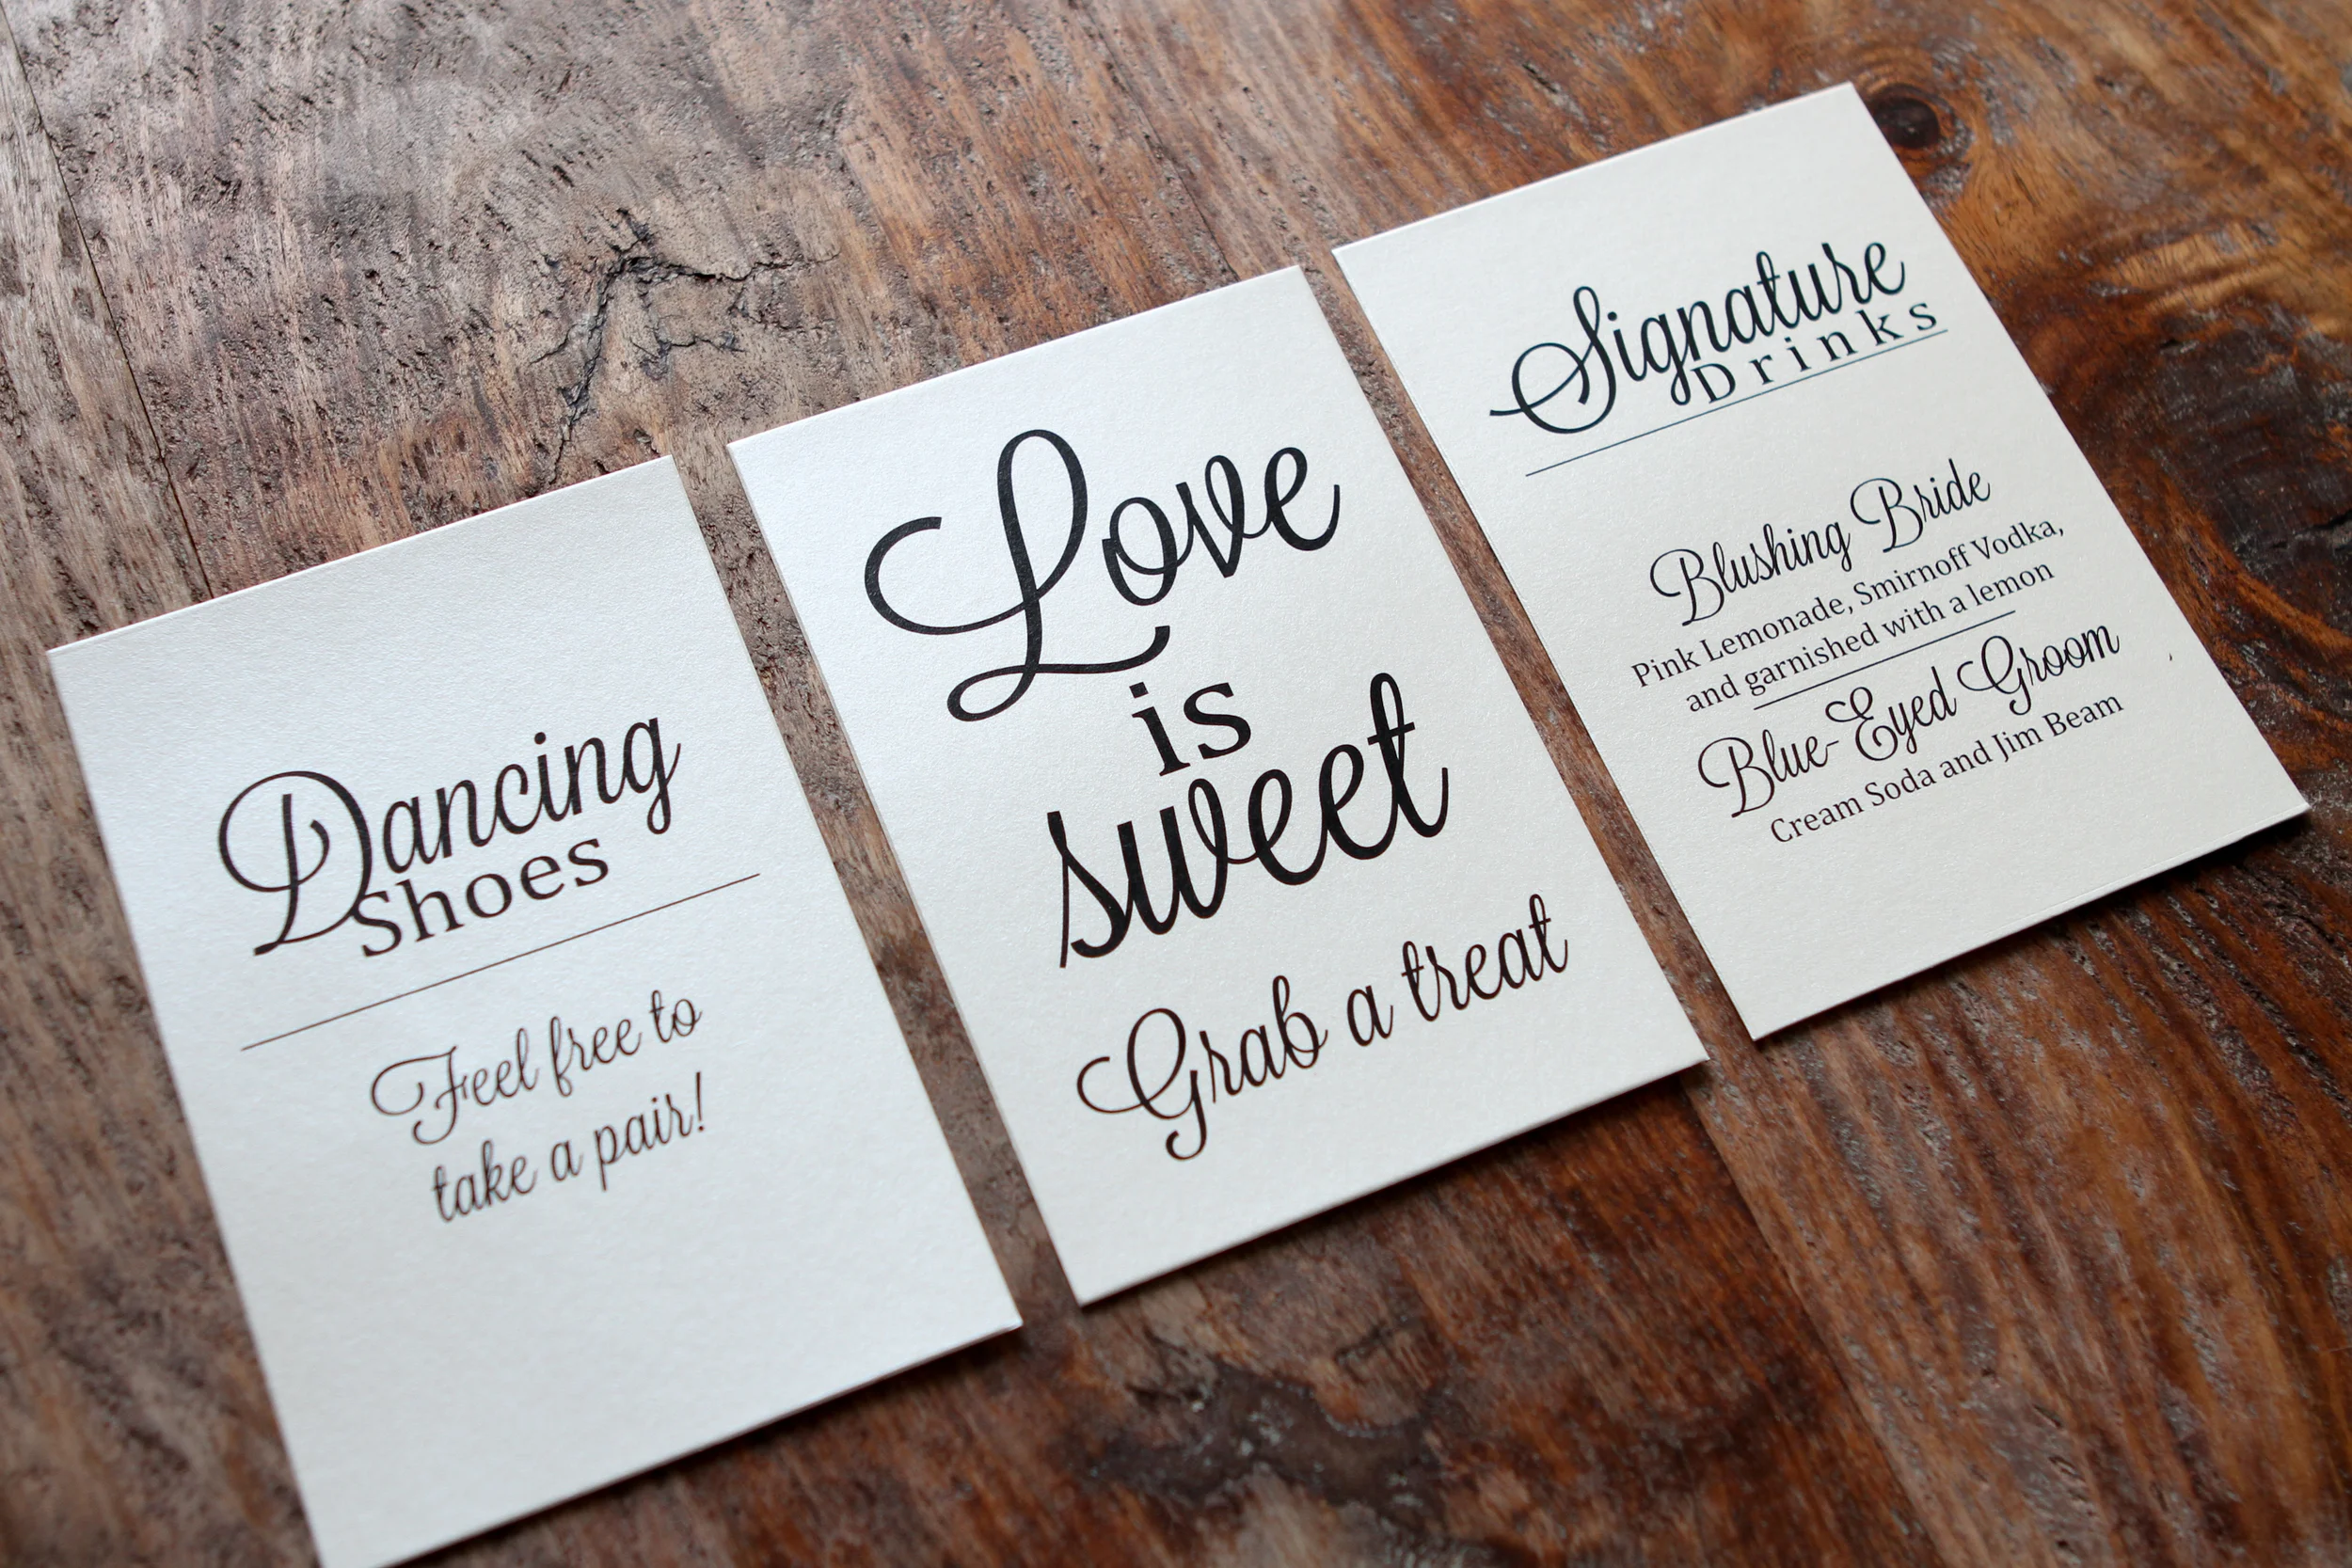 Dancing
Shoes
Feel free to
take a pair!
Love
is
sweet
Grab a treat
Signature
Drinks
Blushing Bride
Pink Lemonade, Smirnoff Vodka,
and garnished with a lemon
Blue-Eyed Groom
Cream Soda and Jim Beam